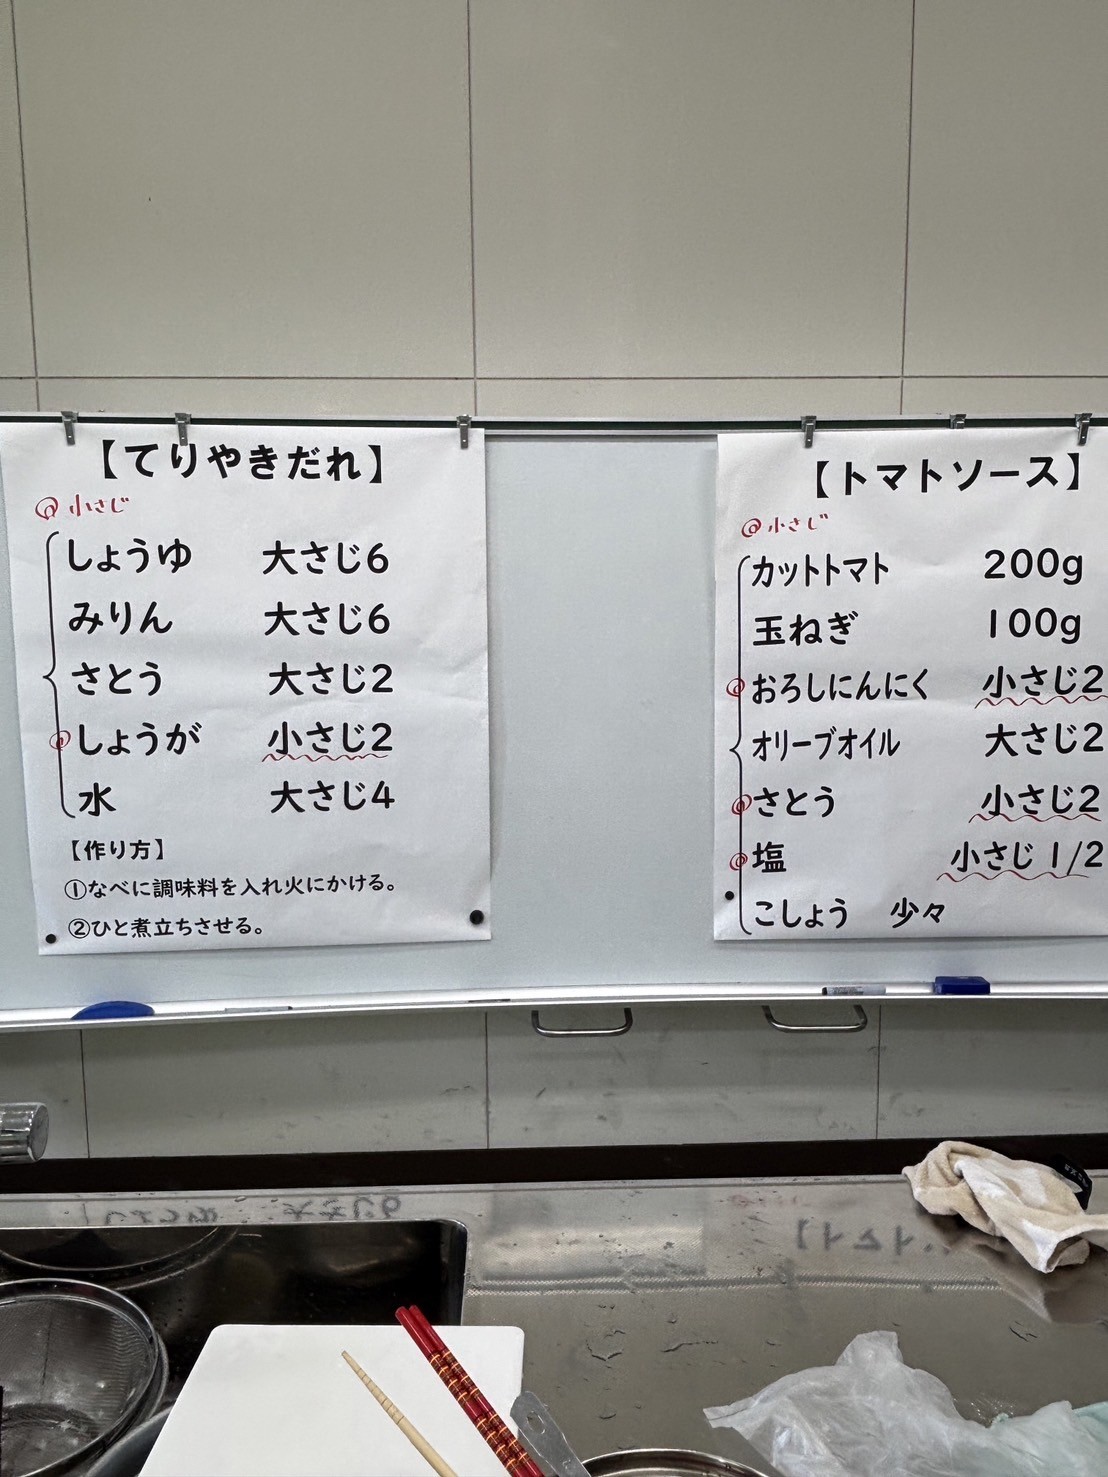 【てりやきだれ】
@小さじ
しょうゆ 大さじ6
みりん 大さじ6
さとう 大さじ2
@しょうが 小さじ2
水 大さじ4
【作り方】
①なべに調味料を入れ火にかける。
②ひと煮立ちさせる。
【トマトソース】
@小さじ
カットトマト 200g
玉ねぎ 100g
@おろしにんにく 小さじ2
オリーブオイル 大さじ2
@さとう 小さじ2
@塩 小さじ 1/2
こしょう 少々